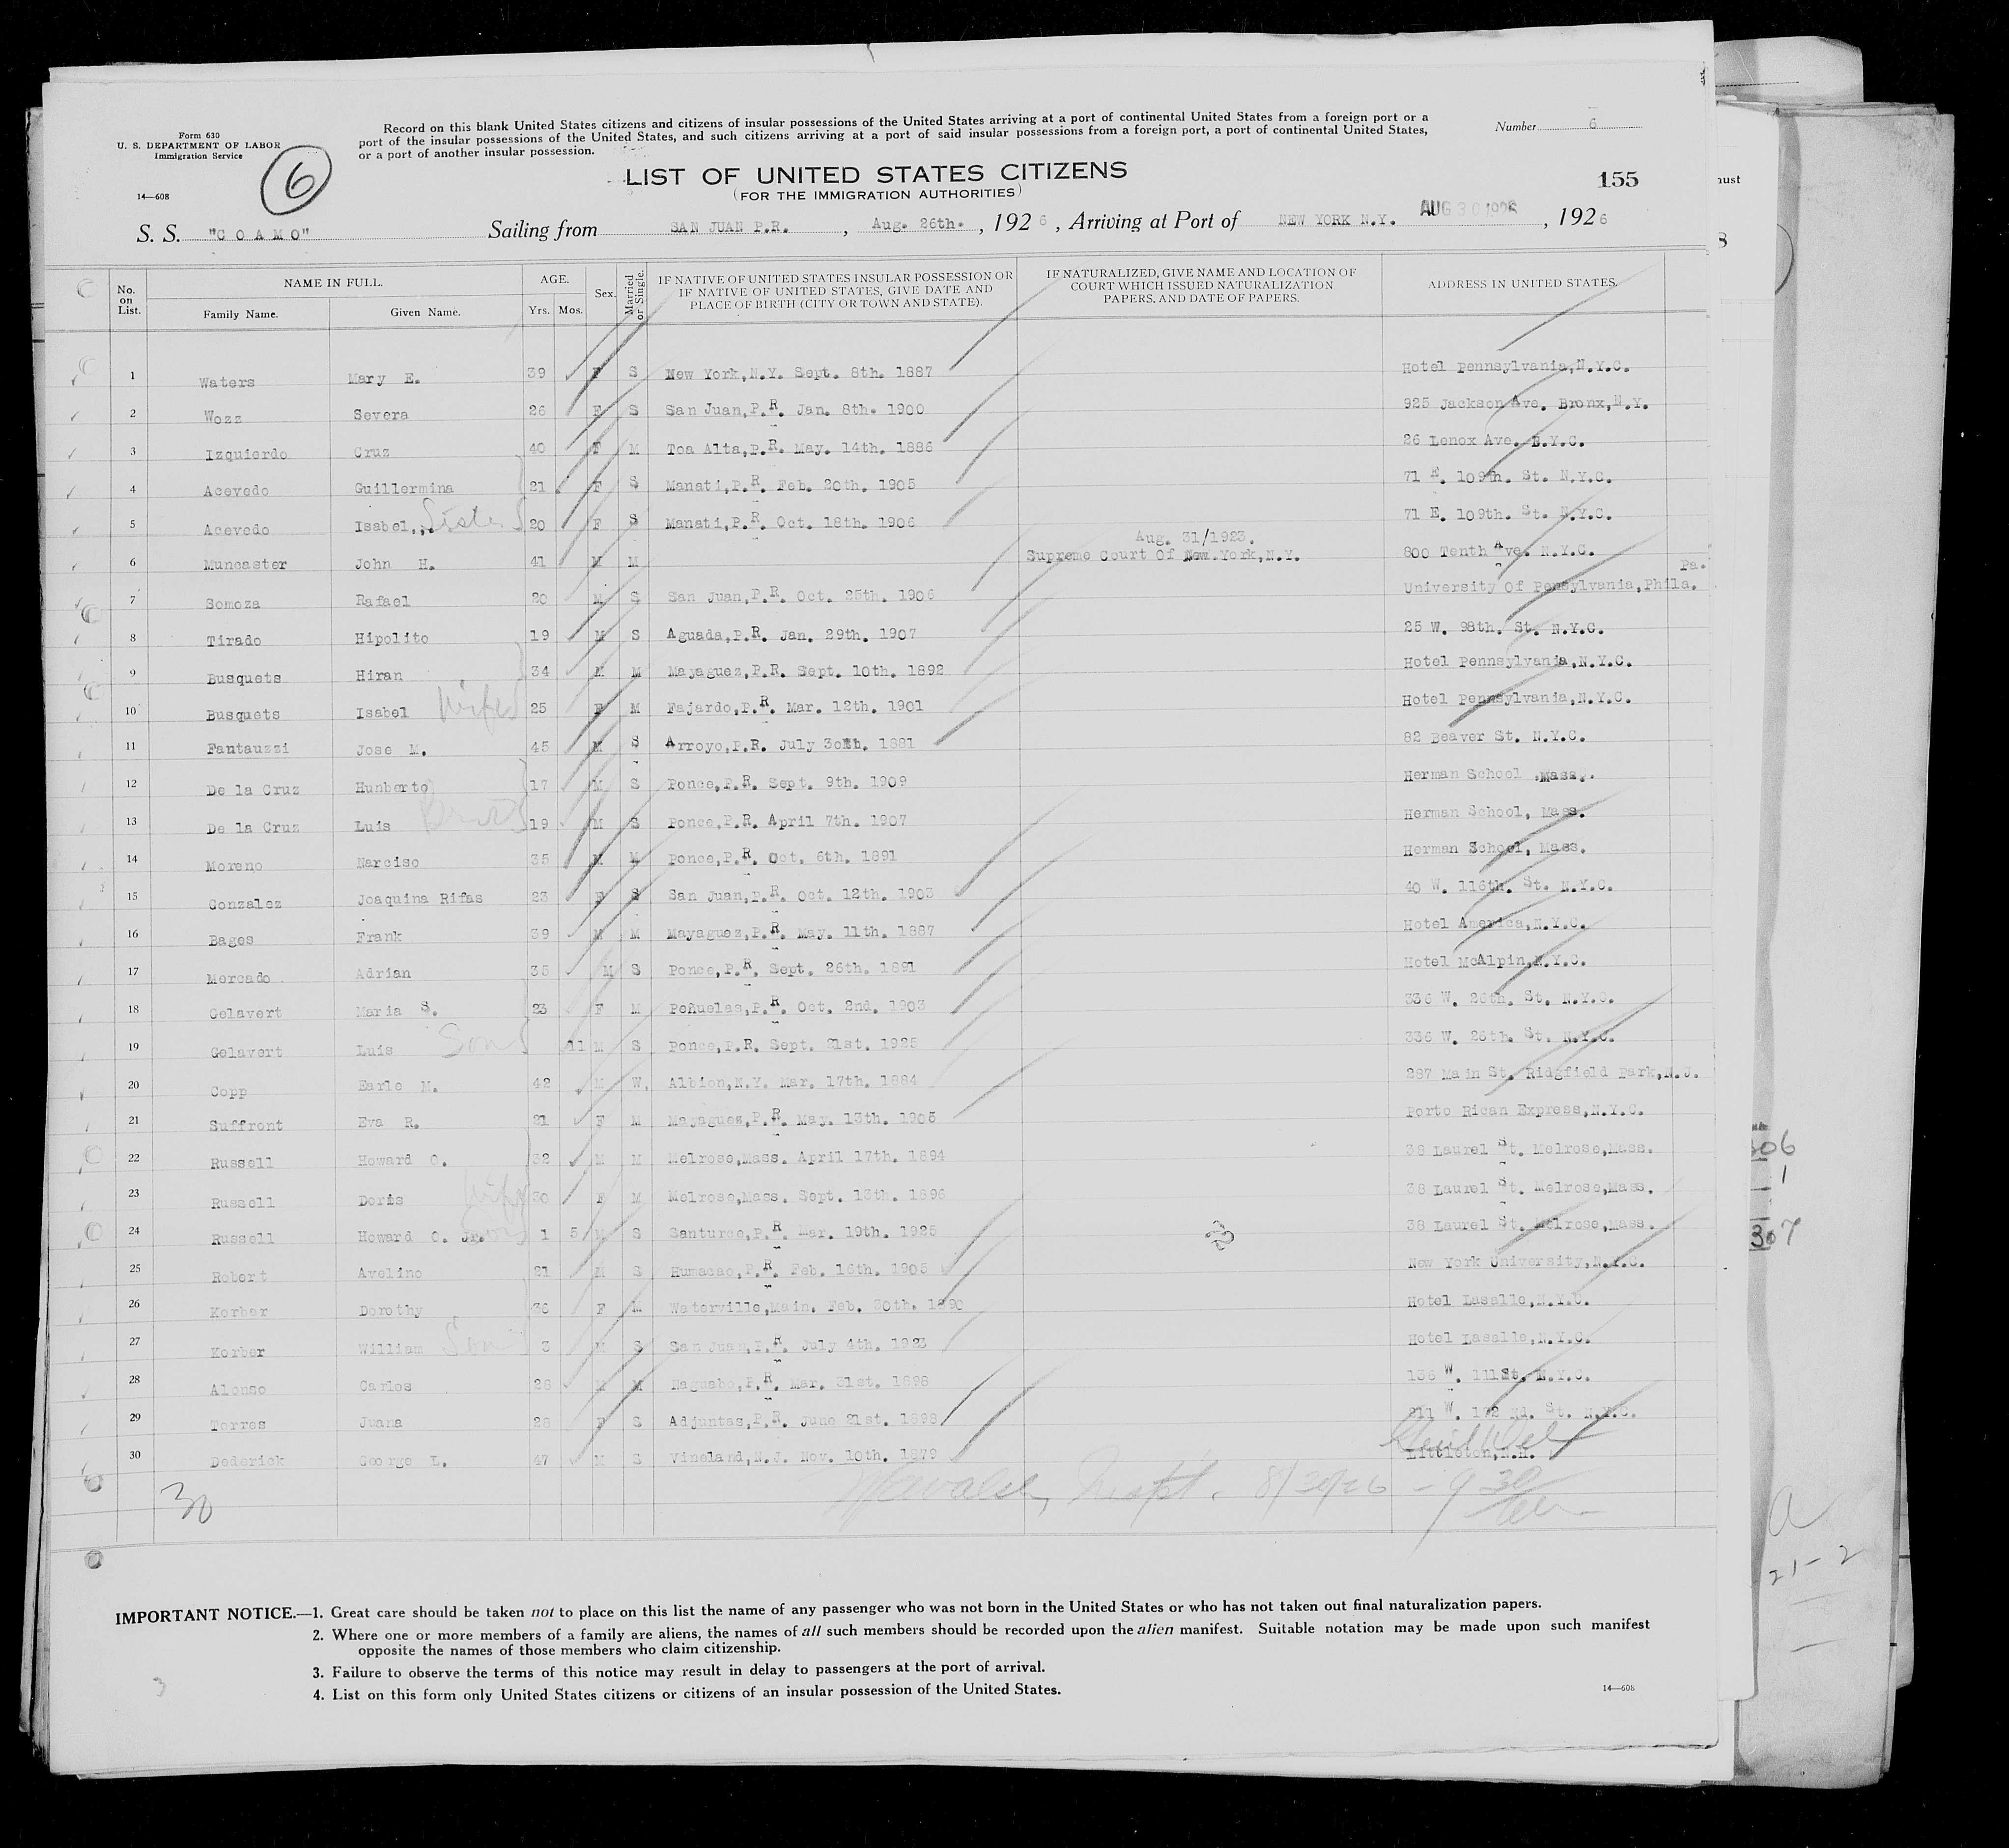 Form 630
U. S. DEPARTMENT OF LABOR
Immigration Service
14—608
6
Record on this blank United States citizens and citizens of insular possessions of the United States arriving at a port of continental United States from a foreign port or a
port of the insular possessions of the United States, and such citizens arriving at a port of said insular possessions from a foreign port, a port of continental United States,
or a port of another insular possession.
Number 6
LIST OF UNITED STATES CITIZENS
(FOR THE IMMIGRATION AUTHORITIES)
155
S. S. "COAMO" Sailing from SAN JUAN P.R. , Aug. 26th. , 1926 , Arriving at Port of NEW YORK N.Y. AUG 30 1926 , 1926
No. on List. NAME IN FULL. Family Name. Given Name. AGE. Yrs. Mos. Sex. Married or Single. IF NATIVE OF UNITED STATES INSULAR POSSESSION OR IF NATIVE OF UNITED STATES, GIVE DATE AND PLACE OF BIRTH (CITY OR TOWN AND STATE). IF NATURALIZED, GIVE NAME AND LOCATION OF COURT WHICH ISSUED NATURALIZATION PAPERS. AND DATE OF PAPERS. ADDRESS IN UNITED STATES.
1 Waters Mary E. 39 F S New York,N.Y. Sept. 8th. 1887 Hotel Pennsylvania,N.Y.C.
2 Wozz Severa 26 F S San Juan,P.R. Jan. 8th. 1900 925 Jackson Ave. Bronx,N.Y.
3 Izquierdo Cruz 40 F M Toa Alta,P.R. May. 14th. 1886 26 Lenox Ave. B.Y.C.
4 Acevedo Guillermina 21 F S Manati,P.R. Feb. 20th. 1905 71 E. 109th. St. N.Y.C.
5 Acevedo Isabel,, Sister 20 F S Manati,P.R. Oct. 18th. 1906 71 E. 109th. St. N.Y.C.
6 Muncaster John H. 41 M M Aug. 31/1923. Supreme Court Of New York,N.Y. 800 Tenth Ave. N.Y.C.
7 Somoza Rafael 20 M S San Juan,P.R. Oct. 25th. 1906 University Of Pensylvania,Phila. Pa.
8 Tirado Hipolito 19 M S Aguada,P.R. Jan. 29th. 1907 25 W. 98th. St. N.Y.C.
9 Busquets Hiran 34 M M Mayaguez,P.R. Sept. 10th. 1892 Hotel Pennsylvania,N.Y.C.
10 Busquets Isabel Wife 25 F M Fajardo,P.R. Mar. 12th. 1901 Hotel Pennsylvania,N.Y.C.
11 Fantauzzi Jose M. 45 M S Arroyo,P.R. July 30th. 1881 82 Beaver St. N.Y.C.
12 De la Cruz Hunberto 17 M S Ponce,P.R. Sept. 9th. 1909 Herman School ,Mass.
13 De la Cruz Luis 19 M S Ponce,P.R. April 7th. 1907 Herman School, Mass.
14 Moreno Narciso 35 M M Ponce,P.R. Oct. 6th. 1891 Herman School, Mass.
15 Gonzalez Joaquina Rifas 23 F S San Juan,P.R. Oct. 12th. 1903 40 W. 116th. St. N.Y.C.
16 Bages Frank 39 M M Mayaguez,P.R. May. 11th. 1887 Hotel America,N.Y.C.
17 Mercado Adrian 35 M S Ponce,P.R. Sept. 26th. 1891 Hotel McAlpin,N.Y.C.
18 Gelavert Maria S. 23 F M Peñuelas,P.R. Oct. 2nd. 1903 336 W. 26th. St. N.Y.C.
19 Gelavert Luis Son 11 M S Ponce,P.R. Sept. 21st. 1925 336 W. 26th. St. N.Y.C.
20 Copp Earle M. 42 M W. Albion,N.Y. Mar. 17th. 1884 287 Main St. Ridgfield Park,N.J.
21 Suffront Eva R. 21 F M Mayaguez,P.R. May. 13th. 1905 Porto Rican Express,N.Y.C.
22 Russell Howard O. 32 M M Melrose,Mass. April 17th. 1894 38 Laurel St. Melrose,Mass.
23 Russell Doris Wife 30 F M Melrose,Mass. Sept. 13th. 1896 38 Laurel St. Melrose,Mass.
24 Russell Howard O. Jr. 1 5 M S Santurce,P.R. Mar. 19th. 1925 38 Laurel St. Melrose,Mass.
25 Robert Avelino 21 M S Humacao,P.R. Feb. 16th. 1905 New York University,N.Y.C.
26 Korber Dorothy 36 F M Waterville,Main. Feb. 30th. 1890 Hotel Laselle,N.Y.C.
27 Korber William Son 3 M S San Juan,P.R. July 4th. 1923 Hotel Laselle,N.Y.C.
28 Alonso Carlos 28 M M Naguabo,P.R. Mar. 31st. 1898 136 W. 111St. N.Y.C.
29 Torres Juana 28 F S Adjuntas,P.R. June 21st. 1898 211 W. 112 Nd. St. N.Y.C.
30 Dederick George L. 47 M S Vineland,N.J. Nov. 10th. 1879 Littleton,N.H.
30
8/30/26 - 9 30
IMPORTANT NOTICE.—1. Great care should be taken not to place on this list the name of any passenger who was not born in the United States or who has not taken out final naturalization papers.
2. Where one or more members of a family are aliens, the names of all such members should be recorded upon the alien manifest. Suitable notation may be made upon such manifest
opposite the names of those members who claim citizenship.
3. Failure to observe the terms of this notice may result in delay to passengers at the port of arrival.
4. List on this form only United States citizens or citizens of an insular possession of the United States.
14—608
3
306
1
307
21-2